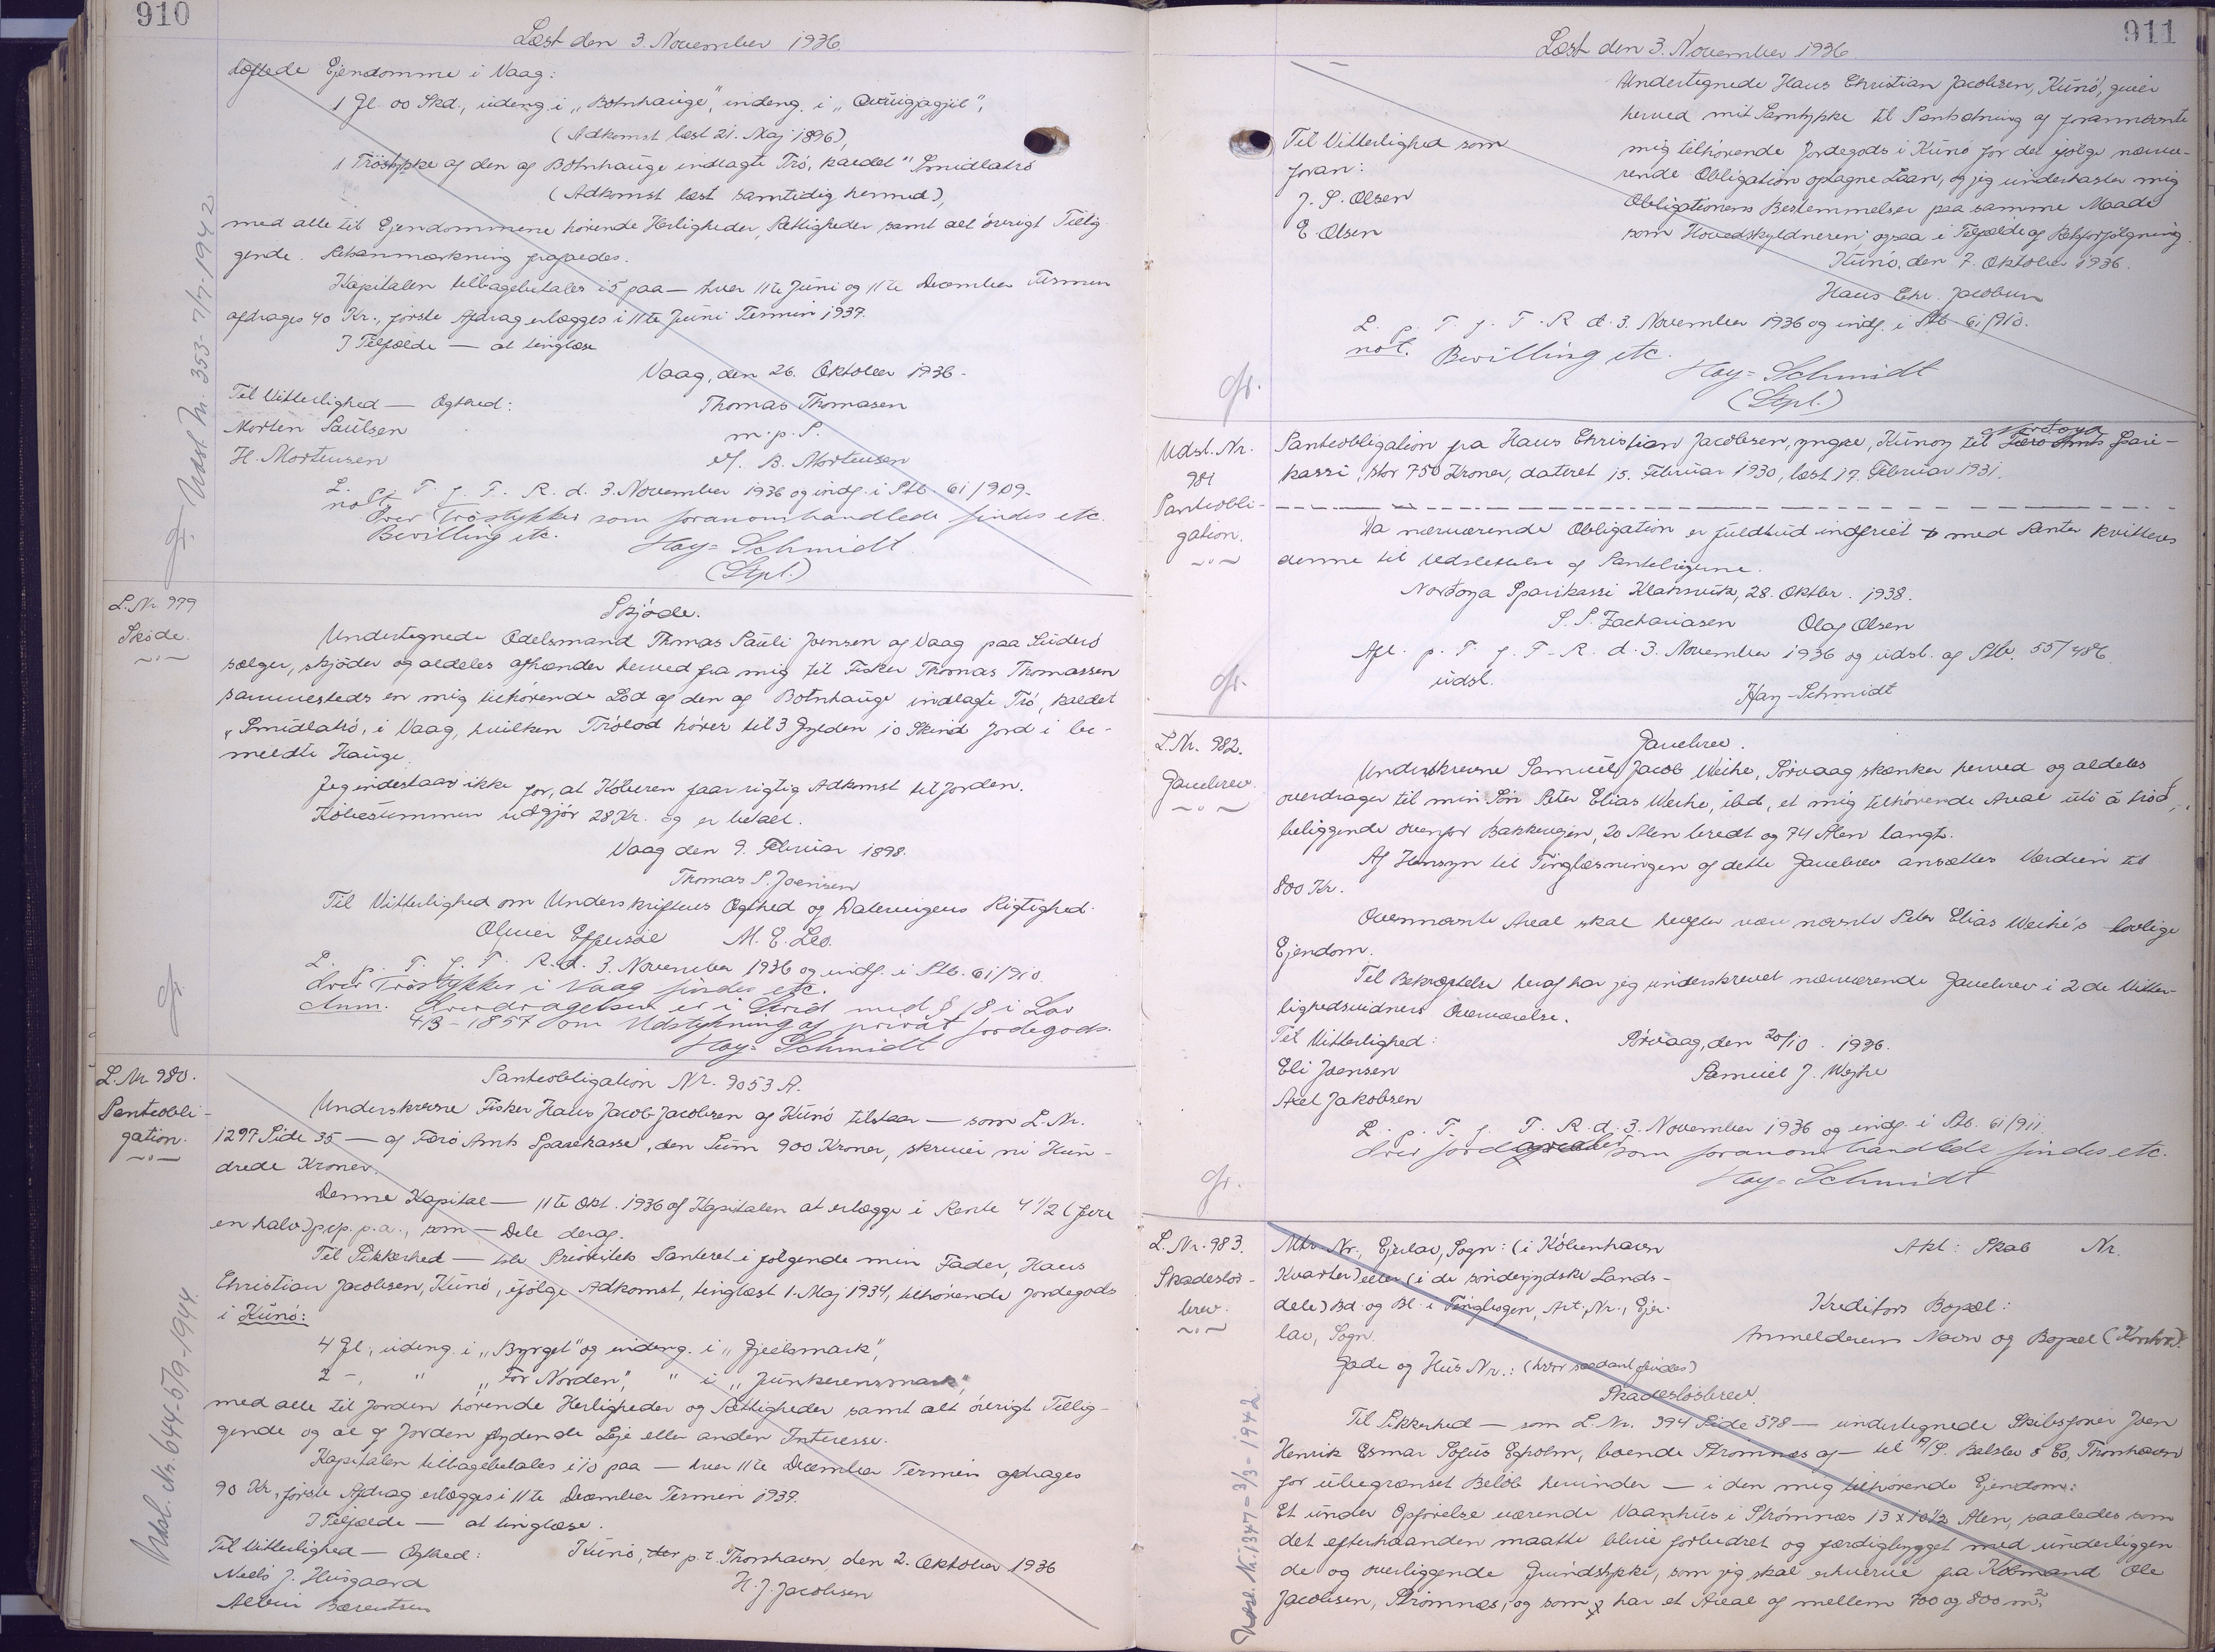 910
Læst den 3. November 1936.
løftede Ejendomme i Vaag:
1 Gl. 00 Skd., udeng. i „Botnhauge", indeng. i
(Adkomst læst 21. Maj 1896),
1 Tröstykke af den af Botnhauge indlagte Trö, kaldet "Smidlatrö
(Adkomst læst samtidig hermed),
med alle til Ejendommene hörende Herligheder, Rettigheder samt alt övrigt Tillig-
gende. Retsanmærkning frafaldes.
Kapitalen tilbagebetales i 5 paa — hver 11te Juni og 11te December Termin
afdrages 40 Kr., förste Afdrag erlægges i 11te Juni Termin 1937.
I Tilfælde — at tinglæse
Vaag, den 26. Oktober 1936.
Til Vitterlighed — Ægthed: Thomas Thomasen
Morten Poulsen m. p. P.
H. Mortensen e/f. B. Mortensen
L. p. T. f. T. R. d. 3. November 1936 og indf. i Ptb. 61/909.
not. Over Tröstykker som foranomhandlede findes etc.
Bevilling etc. Hay=Schmidt
(Stpl.)
Gr. Udsl. Nr. 353-7/7-1942
L. Nr. 979
Sköde.
Skjöde.
Undertegnede Odelsmand Thomas Pauli Joensen af Vaag paa Suderö
sælger, skjöder og aldeles afhænder herved fra mig til Fisker Thomas Thomassen
sammesteds en mig tilhörende Lod af den af Botnhauge indlagte Trö, kaldet
„Smidlatrö, i Vaag, hvilken Trölod hörer til 3 Gylden 10 Skind Jord i be-
meldte Hauge.
Jeg indestaar ikke for, at Köberen faar rigtig Adkomst til Jorden.
Köbesummen udgjör 28 Kr. og er betalt.
Vaag den 9. Februar 1898.
Thomas P. Joensen
Til Vitterlighed om Underskriftens Ægthed og Dateringens Rigtighed.
M. E. Leo.
L. p. T. f. T. R. d. 3. November 1936 og indf. i Ptb. 61/910.
Over Tröstykker i Vaag findes etc.
Anm. Overdragelsen er i Strid med § 18 i Lov
4/3-1857 om Udstykning af privat Jordegods.
Hay=Schmidt
Gr.
L. Nr. 980.
Panteobli-
gation.
Panteobligation Nr. 9053 A.
Underskrevne Fisker Hans Jacob Jacobsen af Kunö tilstaar — som L. Nr.
1297 Side 35 — af Færö Amts Sparekasse, den Sum 900 Kroner, skriver ni Hun-
drede Kroner.
Denne Kapital — 11te Okt. 1936 af Kapitalen at erlægge i Rente 4 1/2 (fire
en halv) p.ct. p.a., som — Dele deraf.
Til Sikkerhed — 1ste Prioritets Panteret i fölgende min Fader, Hans
Christian Jacobsen, Kunö, ifölge Adkomst, tinglæst 1. Maj 1934, tilhörende Jordegods
i Kunö:
4 Gl., udeng. i „Byrget" og indeng. i „Gjeilsmark",
2 -, " „För Norden", " i „Junkerensmark",
med alle til Jorden hörende Herligheder og Rettigheder samt alt övrigt Tillig-
gende og al af Jorden flydende Leje eller anden Interesse.
Kapitalen tilbagebetales i 10 paa — hver 11te December Termin afdrages
90 Kr., förste Afdrag erlægges i 11te December Termin 1937.
I Tilfælde — at tinglæse.
Til Vitterlighed — Ægthed: Kunö, der p.t. Thorshavn, den 2. Oktober 1936
Niels J. Husgaard H. J. Jacobsen
Alvin Bærentsen
Udsl. Nr. 644-5/9-1944.
911
Læst den 3. November 1936
Undertegnede Hans Christian Jacobsen, Kunö, giver
herved mit Samtykke til Pantsætning af forannævnte
mig tilhörende Jordegods i Kunö for det ifölge nærvæ-
rende Obligation optagne Laan, og jeg underkaster mig
Obligationens Bestemmelser paa samme Maade
som Hovedskyldneren; ogsaa i Tilfælde af Retsforfölgning.
Kunö, den 7. Oktober 1936.
Hans Chr. Jacobsen
Til Vitterlighed som
foran:
J. P. Olsen
E. Olsen
L. p. T. f. T. R. d. 3. November 1936 og indf. i Ptb. 61/910.
not. Bevilling etc. Hay=Schmidt
(Stpl.)
Gr.
Udsl. Nr.
981
Panteobli-
gation.
Panteobligation fra Hans Christian Jacobsen, yngre, Kunoy til Færö Amts Nordoya Spari-
kassi, stor 750 Kroner, dateret 15. Februar 1930, læst 17. Februar 1931.
Da nærværende Obligation er fuldtud indfriet med Renter kvitteres
denne til Udslettelse af Pantebögerne.
Nordoya Sparikassi Klaksvik, 28. Oktbr. 1938.
P. P. Zachariasen Olaf Olsen
Afl. p. T. f. T. R. d. 3. November 1936 og udsl. af Ptb. 55/486.
udsl. Hay-Schmidt
Gr.
L. Nr. 982.
Gavebrev.
Gavebrev.
Underskrevne Samuel Jacob Weihe, Sörvaag skænker herved og aldeles
overdrager til min Sön Peter Elias Weihe, ibd, et mig tilhörende Areal uti á tröd,
beliggende ovenfor Bakkevegin, 20 Alen bredt og 74 Alen langt.
Af Hensyn til Tinglæsningen af dette Gavebrev ansættes Værdien til
800 Kr.
Ovennævnte Areal skal herefter være nævnte Peter Elias Weihe's lovlige
Ejendom.
Til Bekræftelse heraf har jeg underskrevet nærværende Gavebrev i 2 de Vitter-
lighedsvidners Overværelse.
Til Vitterlighed: Sörvaag, den 20/10. 1936.
Eli Joensen Samuel J. Weihe
Axel Jakobsen
L. p. T. f. T. R. d. 3. November 1936 og indf. i Ptb. 61/911.
Over Jordarealer som foranomhandlede findes etc.
Hay=Schmidt
Gr.
L. Nr. 983.
Skadeslös-
brev.
Mtr. Nr., Ejerlav, Sogn: (i Köbenhavn Akt: Skab Nr.
Kvarter) eller (i de sönderjydske Lands-
dele) Bd. og Bl. i Tingbogen, Art. Nr., Ejer- Kreditors Bopæl:
lav, Sogn. Anmelderens Navn og Bopæl (Kontor).
Gade og Hus Nr.: (hvor saadant findes)
Skadeslösbrev.
Til Sikkerhed — som L. Nr. 394 Side 578 — undertegnede Skibsförer Joen
Henrik Esmar Sofus Egholm, boende Strömnæs af — til A/S. Balslev & Co, Thorshavn
for ubegrænset Belöb herunder — i den mig tilhörende Ejendom:
Et under Opförelse værende Vaanhus i Strömnæs 13 x 10 1/2 Alen, saaledes som
det efterhaanden maatte blive forbedret og færdigbygget med underliggen-
de og overliggende Grundstykke, som jeg skal erhverve fra Köbmand Ole
Jacobsen, Strömnæs, og som har et Areal af mellem 700 og 800 m².
Udsl. Nr. 1347-3/3-1942.